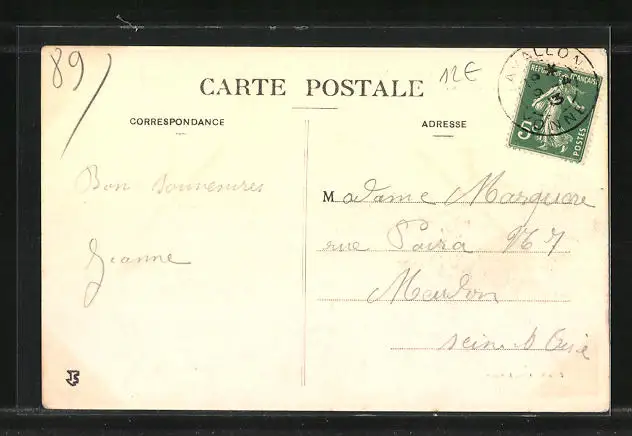 89
CARTE POSTALE
12€
AVALLON
YONNE
REPUBLIQUE FRANÇAISE
5c
POSTES
CORRESPONDANCE
ADRESSE
Bon souvenires
Jeanne
Madame Marquore
rue Paira No 7
Meudon
Seine & Oise